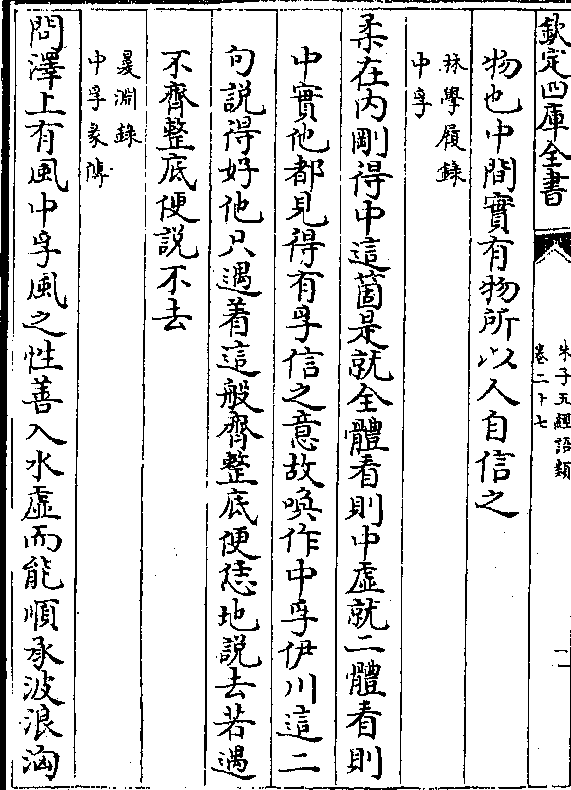 欽定四庫全書
朱子五經語類
卷二十七
二
物也中間實有物所以人自信之
林學履錄
中孚
柔在内剛得中這箇是就全體看則中虛就二體看則
中實他都見得有孚信之意故喚作中孚伊川這二
句說得好他只遇着這般齊整底便恁地說去若遇
不齊整底便說不去
㬊淵錄
中孚彖傳
問澤上有風中孚風之性善入水虛而能順承波浪洶